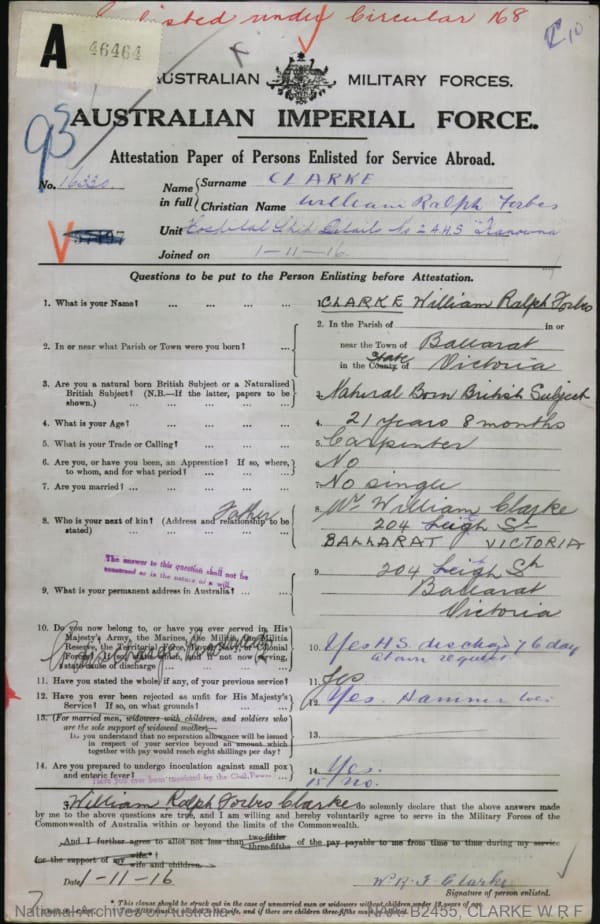 Enlisted under Circular 168
A 46464
AUSTRALIAN MILITARY FORCES.
93
AUSTRALIAN IMPERIAL FORCE.
Attestation Paper of Persons Enlisted for Service Abroad.
No. 16330
Name in full { Surname CLARKE
Christian Name William Ralph Forbes
Unit Hospital Ship Details No 2 A.H.S "Karoowna"
Joined on 1-11-16
Questions to be put to the Person Enlisting before Attestation.
1. What is your Name? ... ... ... ... 1. CLARKE William Ralph Forbes
2. In or near what Parish or Town were you born? ... 2. In the Parish of in or
near the Town of Ballarat
in the County of State Victoria
3. Are you a natural born British Subject or a Naturalized
British Subject? (N.B.—If the latter, papers to be
shown.) ... ... ... ... ... 3. Natural Born British Subject
4. What is your Age? ... ... ... ... 4. 21 years 8 months
5. What is your Trade or Calling? ... ... ... 5. Carpenter
6. Are you, or have you been, an Apprentice? If so, where,
to whom, and for what period? ... ... ... 6. No
7. Are you married? ... ... ... ... 7. No single
8. Who is your next of kin? (Address and relationship to be
stated) ... ... ... ... Father 8. Mr William Clarke
204 Leigh St
BALLARAT VICTORIA
The answer to this question shall not be
construed as in the nature of a will.
9. What is your permanent address in Australia? ... ... 9. 204 Leigh St
Ballarat
Victoria
10. Do you now belong to, or have you ever served in, His
Majesty's Army, the Marines, the Militia, the Militia
Reserve, the Territorial Force, Royal Navy, or Colonial
Forces? If so, state which, and if not now serving,
state cause of discharge ... ... ... 10. Yes H.S. discharge
at own request
11. Have you stated the whole, if any, of your previous service? 11. Yes
12. Have you ever been rejected as unfit for His Majesty's
Service? If so, on what grounds? ... ... 12. Yes. Hammer toe
13. (For married men, widowers with children, and soldiers who
are the sole support of widowed mother)—
Do you understand that no separation allowance will be issued
in respect of your service beyond an amount which
together with pay would reach eight shillings per day? 13.
14. Are you prepared to undergo inoculation against small pox
and enteric fever? ... ... ... 14. Yes.
Have you ever been convicted by the Civil Power 15. No.
I, William Ralph Forbes Clarke do solemnly declare that the above answers made
by me to the above questions are true, and I am willing and hereby voluntarily agree to serve in the Military Forces of the
Commonwealth of Australia within or beyond the limits of the Commonwealth.
And I further agree to allot not less than two-fifths three-fifths of the pay payable to me from time to time during my service
for the support of my wife.* wife and children.
Date 1-11-16 W.R.F. Clarke
Signature of person enlisted.
* This clause should be struck out in the case of unmarried men or widowers without children under
National Archives of Australia NAA: B2455, CLARKE W R F